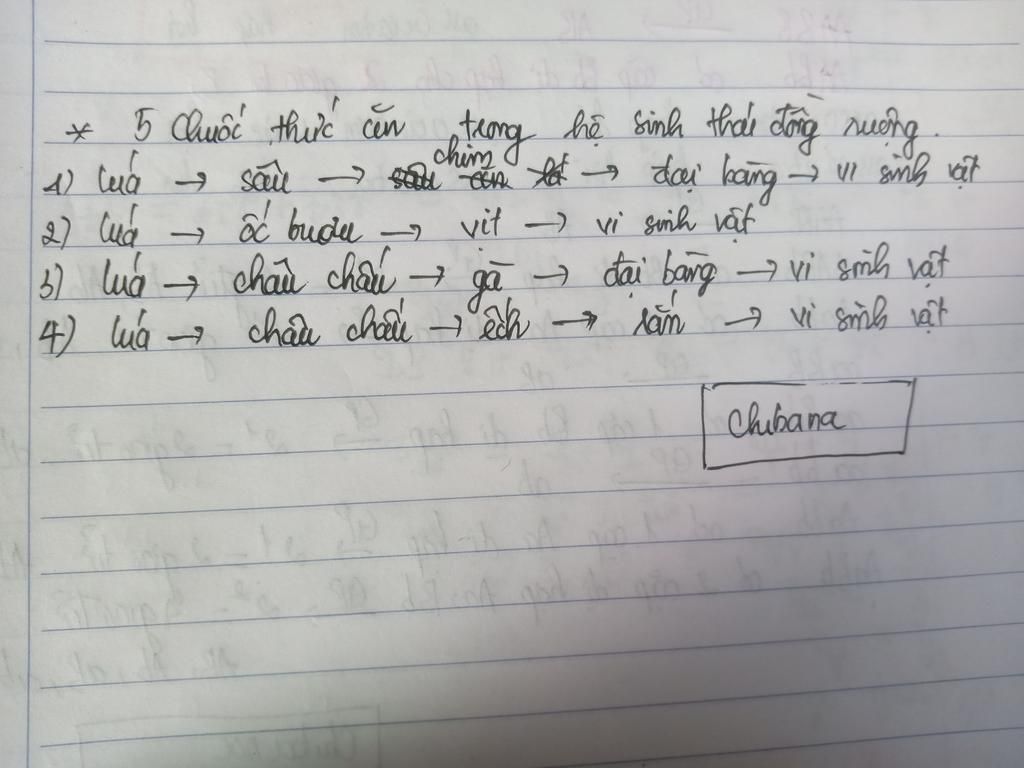 * 5 chuỗi thức ăn trong hệ sinh thái đồng ruộng.
1) lúa → sâu → chim → đại bàng → vi sinh vật
2) lúa → ốc bươu → vịt → vi sinh vật
3) lúa → châu chấu → gà → đại bàng → vi sinh vật
4) lúa → châu chấu → ếch → rắn → vi sinh vật
Chibana